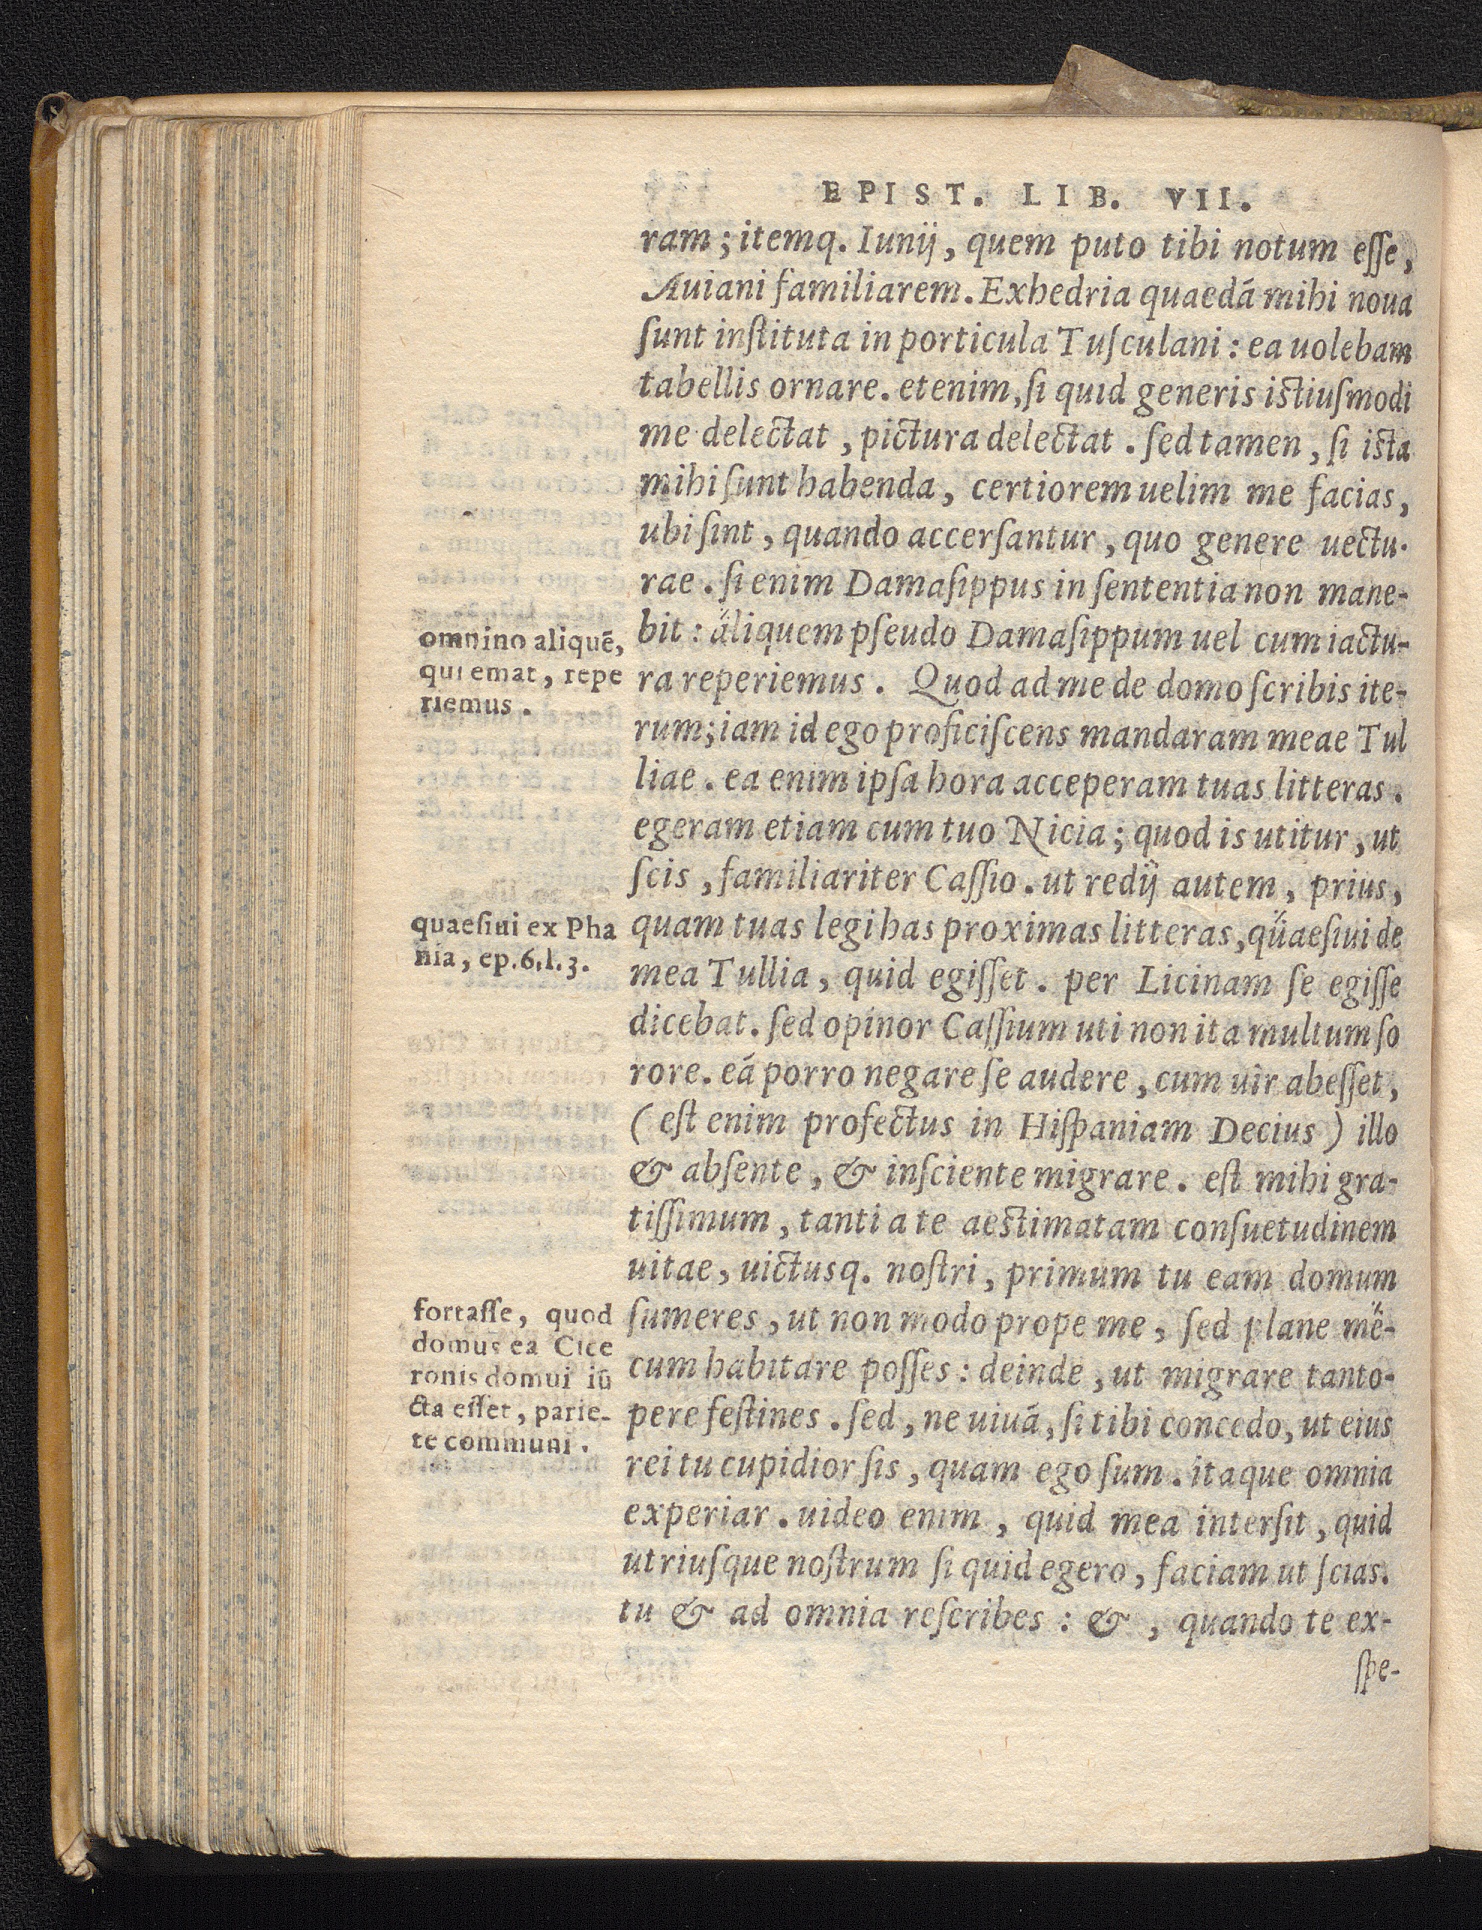 EPIST. LIB. VII.
ram; itemq. Iunij, quem puto tibi notum esse,
Auiani familiarem. Exhedria quaedā mihi noua
sunt instituta in porticula Tusculani: ea uolebam
tabellis ornare. etenim, si quid generis istiusmodi
me delectat, pictura delectat. sed tamen, si ista
mihi sunt habenda, certiorem uelim me facias,
ubi sint, quando accersantur, quo genere uectu-
rae. si enim Damasippus in sententia non mane-
bit: aliquem pseudo Damasippum uel cum iactu-
ra reperiemus. Quod ad me de domo scribis ite-
rum; iam id ego proficiscens mandaram meae Tul
liae. ea enim ipsa hora acceperam tuas litteras.
egeram etiam cum tuo Nicia; quod is utitur, ut
scis, familiariter Cassio. ut redij autem, prius,
quam tuas legi has proximas litteras, quaesiui de
mea Tullia, quid egisset. per Licinam se egisse
dicebat. sed opinor Cassium uti non ita multum so
rore. eā porro negare se audere, cum uir abesset,
(est enim profectus in Hispaniam Decius) illo
& absente, & insciente migrare. est mihi gra-
tissimum, tanti a te aestimatam consuetudinem
uitae, uictusq. nostri, primum tu eam domum
sumeres, ut non modo prope me, sed plane me-
cum habitare posses: deinde, ut migrare tanto-
pere festines. sed, ne uiuā, si tibi concedo, ut eius
rei tu cupidior sis, quam ego sum. itaque omnia
experiar. uideo enim, quid mea intersit, quid
utriusque nostrum si quid egero, faciam ut scias.
tu & ad omnia rescribes: &, quando te ex-
spe-
omnino aliquē,
qui emat, repe
riemus.
quaesiui ex Pha
nia, ep.6.l.3.
fortasse, quod
domus ea Cice
ronis domui iū
cta esset, parie-
te communi.